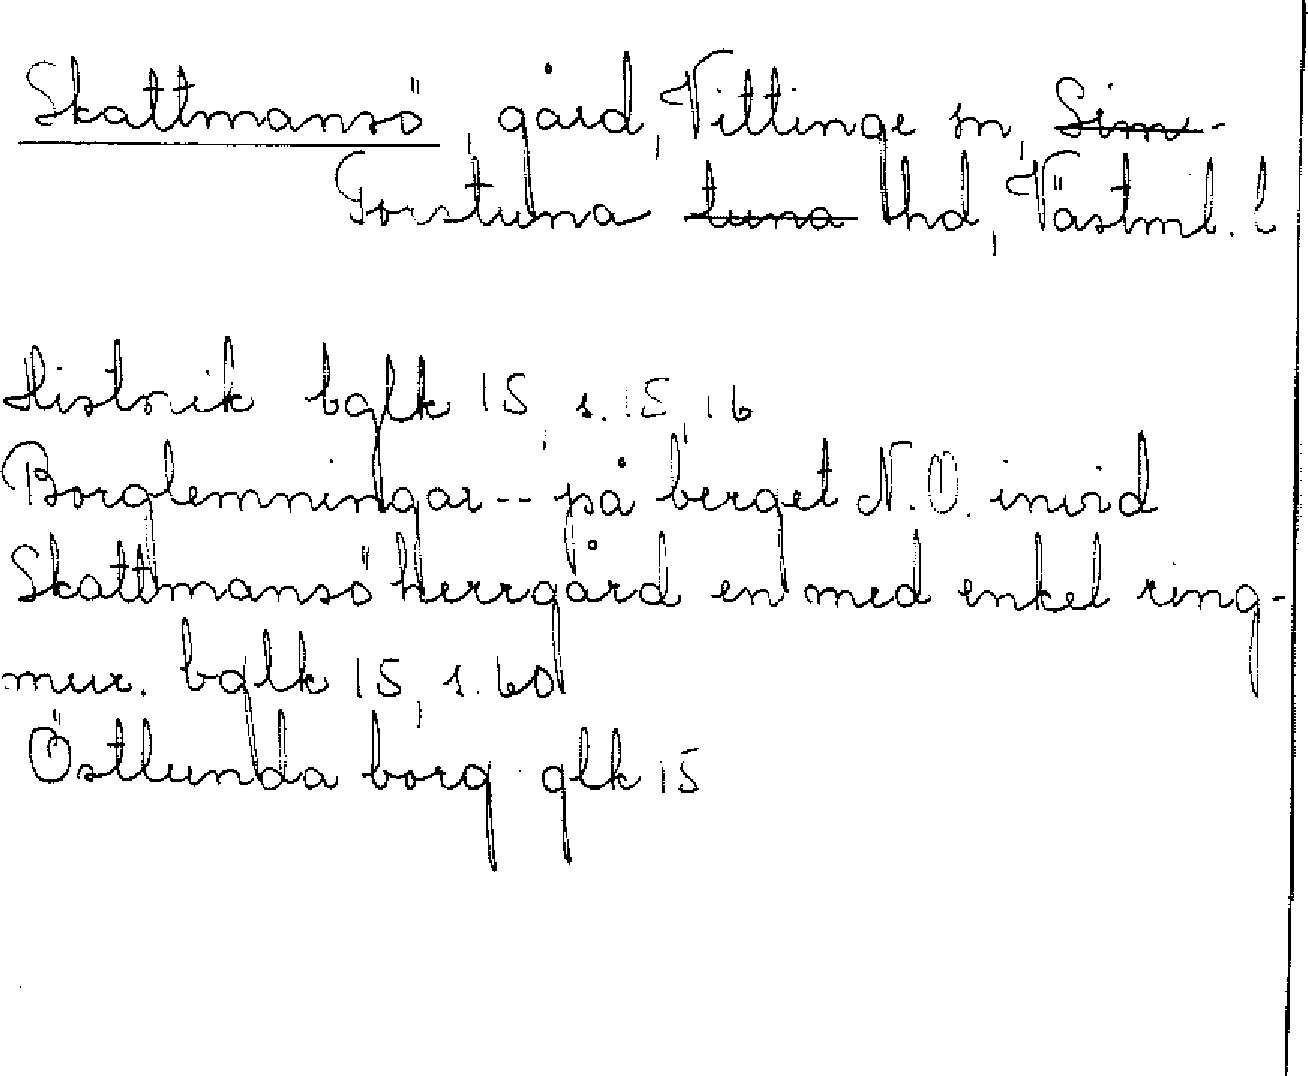 Skattmansö, gård, Vittinge sn, Sim-
Torstuna tuna hd, Västml. l
Historik bglk 15, s. 15, 16
Borglemningar -- på berget N.O. invid
Skattmansö herrgård en med enkel ring-
mur. bglk 15, s. 60
Östlunda borg. glk 15